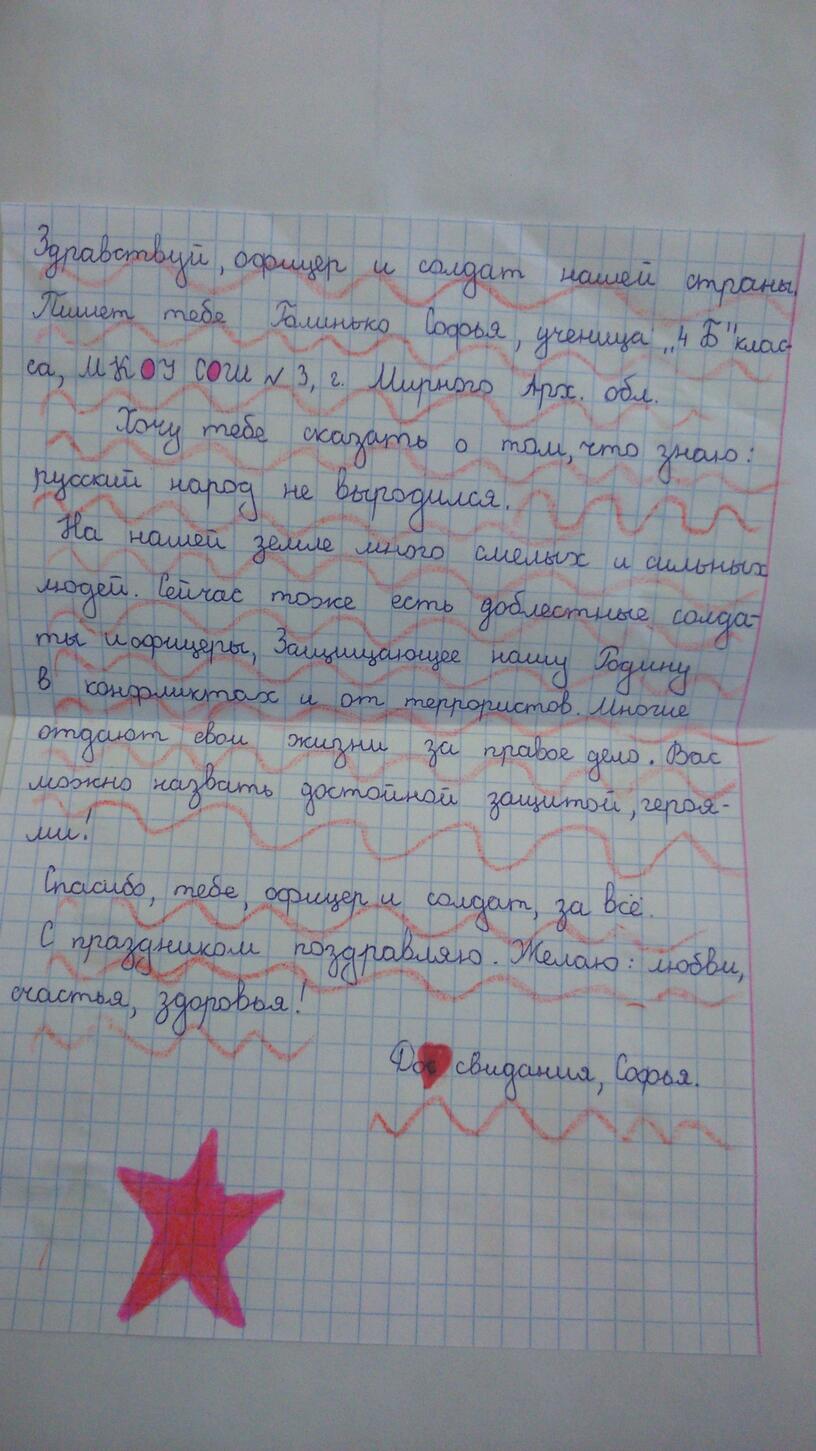 Здравствуй, офицер и солдат нашей страны.
Пишет тебе Галинько Софья, ученица „4 Б" клас-
са, МКОУ СОШ № 3, г. Мирного Арх. обл.
Хочу тебе сказать о том, что знаю:
русский народ не выродился.
На нашей земле много смелых и сильных
людей. Сейчас тоже есть доблестные солда-
ты и офицеры, Защищающее нашу Родину
в конфликтах и от террористов. Многие
отдают свои жизни за правое дело. Вас
можно назвать достойной защитой, героя-
ми!
Спасибо, тебе, офицер и солдат, за всё.
С праздником поздравляю. Желаю: любви,
счастья, здоровья!
До свидания, Софья.